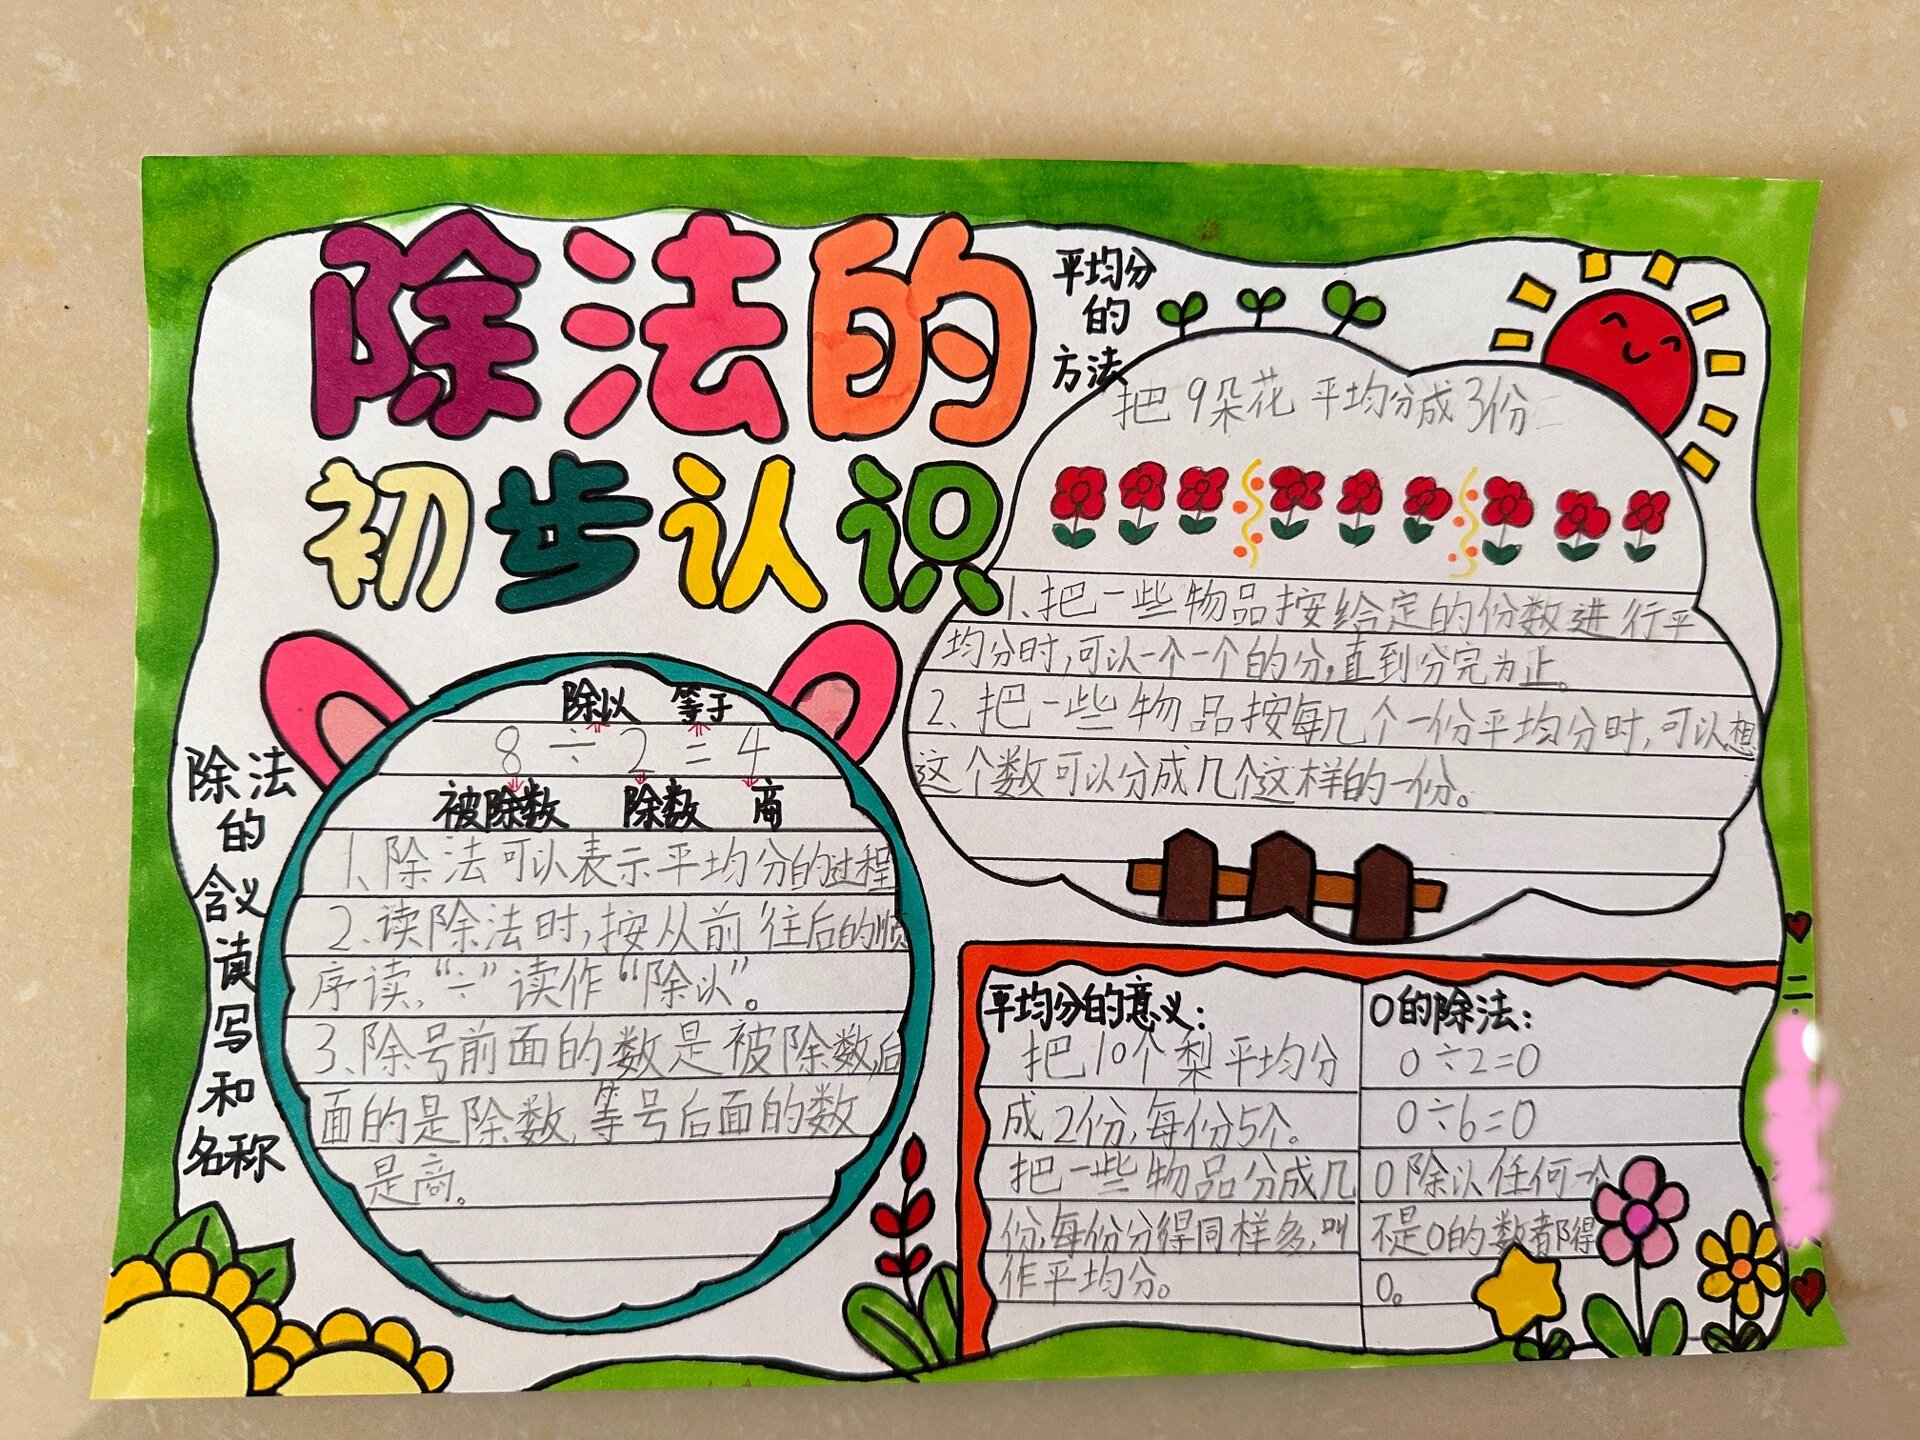 除法的
初步认识
除法
的
含义
读
写
和
名称
除以 等于
8÷2=4
被除数 除数 商
1、除法可以表示平均分的过程
2、读除法时,按从前往后的顺
序读,“÷”读作“除以”。
3、除号前面的数是被除数,后
面的是除数,等号后面的数
是商。
平均分
的
方法
把9朵花平均分成3份
1、把一些物品按给定的份数进行平
均分时,可以一个一个的分,直到分完为止。
2、把一些物品按每几个一份平均分时,可以想
这个数可以分成几个这样的一份。
平均分的意义:
把10个梨平均分
成2份,每份5个。
把一些物品分成几
份,每份分得同样多,叫
作平均分。
0的除法:
0÷2=0
0÷6=0
0除以任何一个
不是0的数都得
0。
二